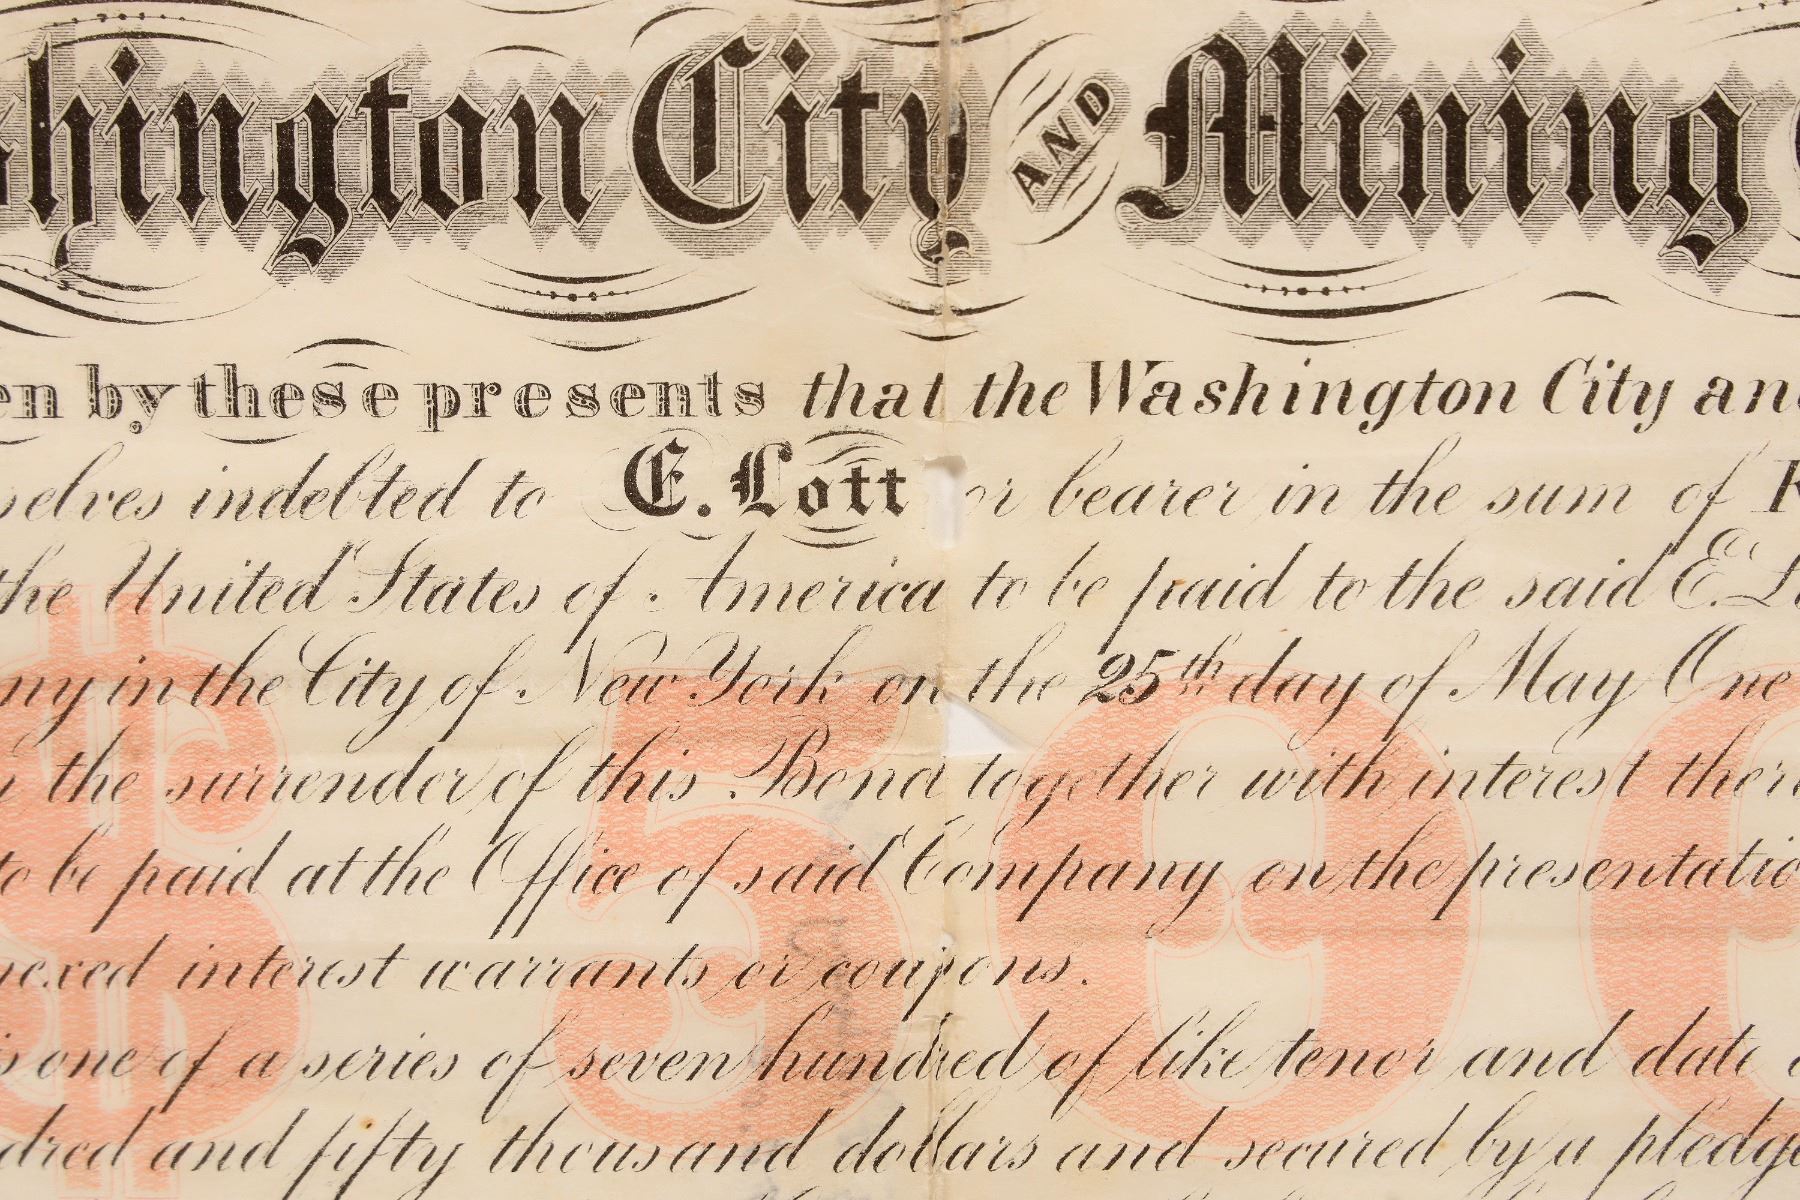 shington City AND Mining
en by these presents that the Washington City an
selves indebted to E. Lott or bearer in the sum of
the United States of America to be paid to the said E. L
ny in the City of New York on the 25th day of May One
the surrender of this Bond together with interest ther
to be paid at the Office of said Company on the presentatio
nexed interest warrants or coupons.
is one of a series of seven hundred of like tenor and date
dred and fifty thousand dollars and secured by a pledge
$ 500